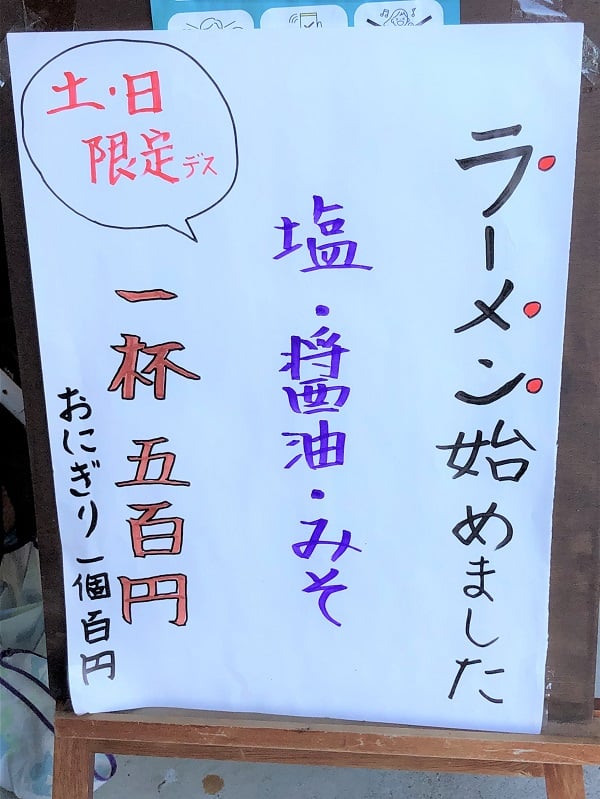 ラーメン始めました
塩・醤油・みそ
土・日
限定デス
一杯 五百円
おにぎり一個百円